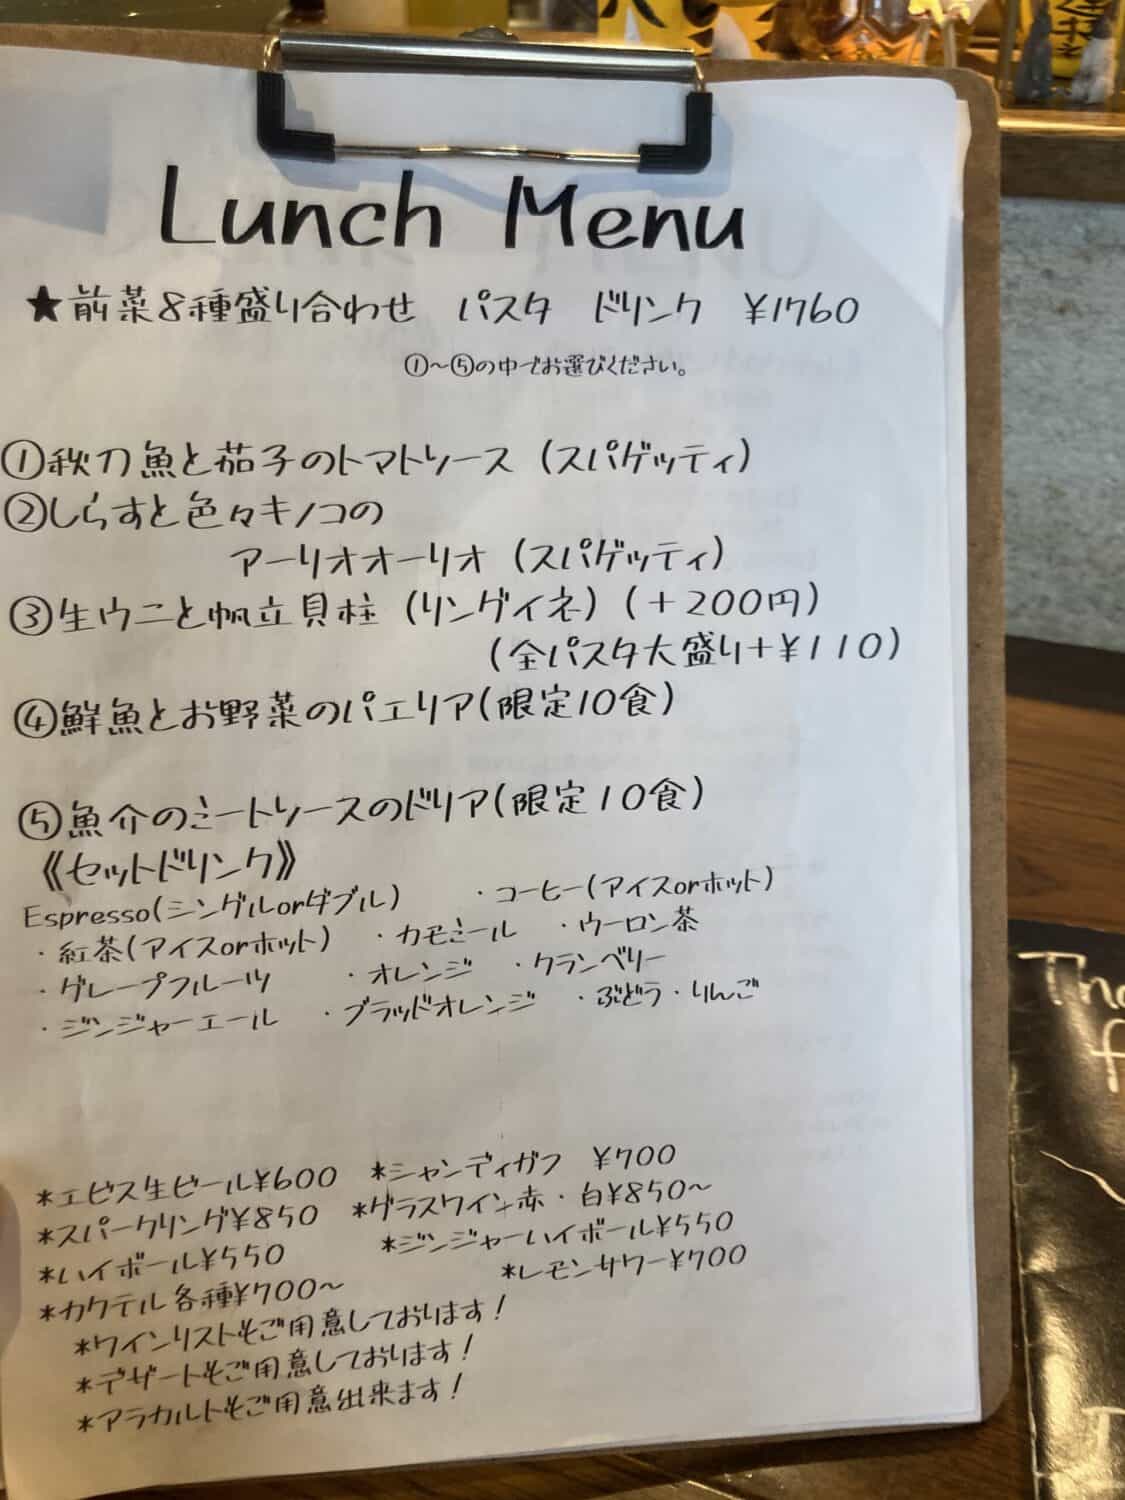 Lunch Menu
★前菜8種盛り合わせ パスタ ドリンク ¥1760
①～⑤の中でお選びください。
①秋刀魚と茄子のトマトソース (スパゲッティ)
②しらすと色々キノコの
アーリオオーリオ (スパゲッティ)
③生ウニと帆立貝柱 (リングイネ) (＋200円)
(全パスタ大盛り+¥110)
④鮮魚とお野菜のパエリア(限定10食)
⑤魚介のミートソースのドリア(限定10食)
《セットドリンク》
Espresso(シングルorダブル) ・コーヒー(アイスorホット)
・紅茶(アイスorホット) ・カモミール ・ウーロン茶
・グレープフルーツ ・オレンジ ・クランベリー
・ジンジャーエール ・ブラッドオレンジ ・ぶどう・りんご
*エビス生ビール¥600 *シャンディガフ ¥700
*スパークリング¥850 *グラスワイン赤・白¥850～
*ハイボール¥550 *ジンジャーハイボール¥550
*カクテル各種¥700～ *レモンサワー¥700
*ワインリストもご用意しております!
*デザートもご用意しております!
*アラカルトもご用意出来ます!